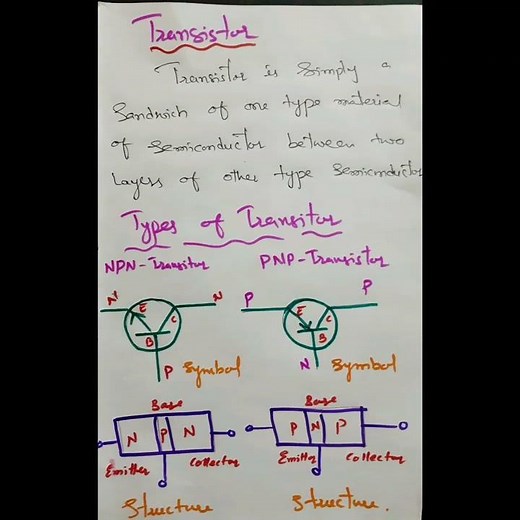 Transistor
Transistor is simply a
Sandwich of one type material
of Semiconductor between two
Layers of other type Semiconductor
Types of Transitor
NPN-Transitor PNP-Transistor
N E C N P E C P
B B
P Symbol N Symbol
Base Base
N P N P N P
Emitter Collector Emitter Collector
Structure Structure.